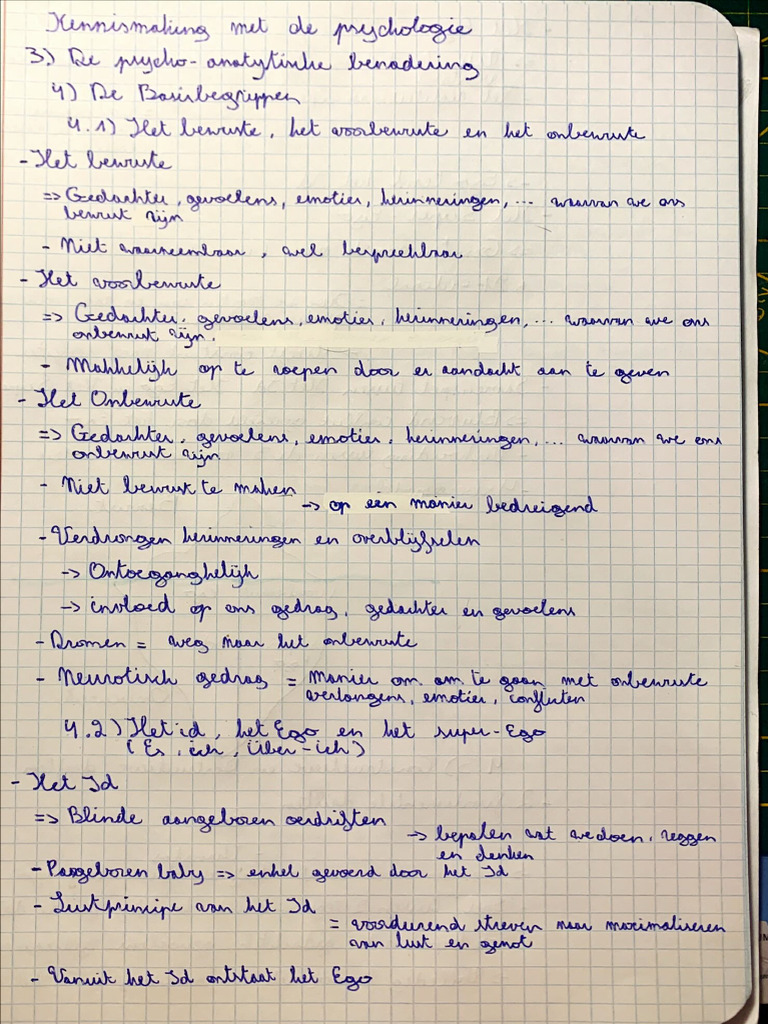 Kennismaking met de psychologie
3) De psycho-analytische benadering
4) De Basisbegrippen
4.1) Het bewuste, het voorbewuste en het onbewuste
- Het bewuste
=> Gedachten, gevoelens, emoties, herinneringen, ... waarvan we ons
bewust zijn
- Niet waarneembaar, wel bespreekbaar
- Het voorbewuste
=> Gedachten, gevoelens, emoties, herinneringen, ... waarvan we ons
onbewust zijn.
- Makkelijk op te roepen door er aandacht aan te geven
- Het Onbewuste
=> Gedachten, gevoelens, emoties, herinneringen, ... waarvan we ons
onbewust zijn
- Niet bewust te maken
-> op een manier bedreigend
- Verdrongen herinneringen en overblijfselen
-> Ontoegangkelijk
-> invloed op ons gedrag, gedachten en gevoelens
- Dromen = weg naar het onbewuste
- Neurotisch gedrag = manier om om te gaan met onbewuste
verlangens, emoties, conflicten
4.2) Het id, het Ego en het super-Ego
(Es, ich, Über-ich)
- Het Id
=> Blinde aangeboren oerdriften
-> bepalen wat we doen, zeggen
en denken
- Pasgeboren baby => enkel gevoerd door het Id
- Lustprincipe van het Id
= voortdurend streven naar maximaliseren
van lust en genot
- Vanuit het Id ontstaat het Ego